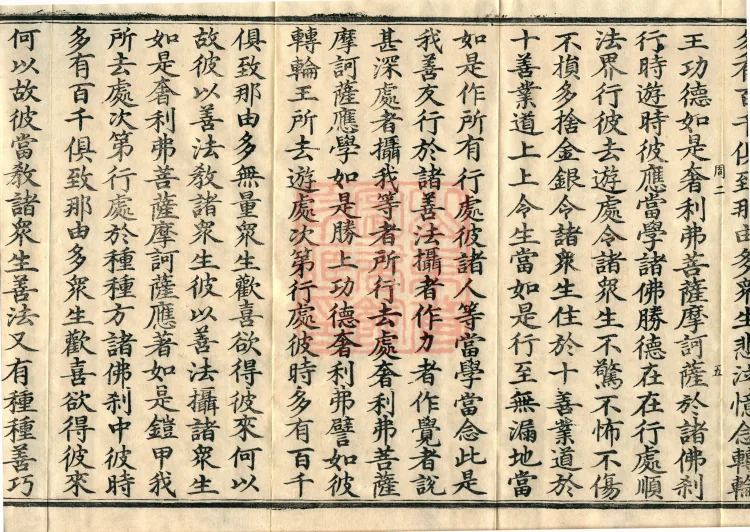 多有百千俱致那由多衆生悲泣憶念轉輪
王功德如是奢利弗菩薩摩訶薩於諸佛刹
周二
五
行時遊時彼應當學諸佛勝德在在行處順
法界行彼去遊處令諸衆生不驚不怖不傷
不損多捨金銀令諸衆生住於十善業道於
十善業道上上令生當如是行至無漏地當
如是作所有行處彼諸人等當學當念此是
我善友行於諸善法攝者作力者作覺者說
甚深處者攝我等者所行去處奢利弗菩薩
摩訶薩應學如是勝上功德奢利弗譬如彼
轉輪王所去遊處次第行處彼時多有百千
俱致那由多無量衆生歡喜欲得彼來何以
故彼以善法敎諸衆生彼以善法攝諸衆生
如是奢利弗菩薩摩訶薩應著如是鎧甲我
所去處次第行處於種種方諸佛刹中彼時
多有百千俱致那由多衆生歡喜欲得彼來
何以故彼當敎諸衆生善法又有種種善巧